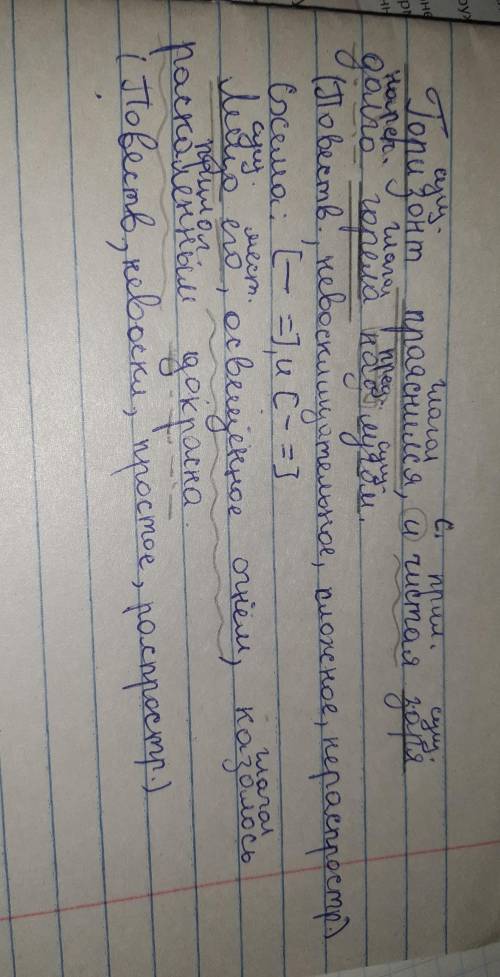 сущ. глагол С. прил. сущ.
Горизонт прояснился, и чистая заря
нареч. глагол пред. сущ.
долго горела над лугом.
(Повеств., невосклицательное, сложное, нераспростр.)
Схема: [— =], и [— =]
сущ. мест. глагол
Лицо его, освещённое огнём, казалось
прилаг.
раскалённым докрасна.
(Повеств, невоскл, простое, распростр.)